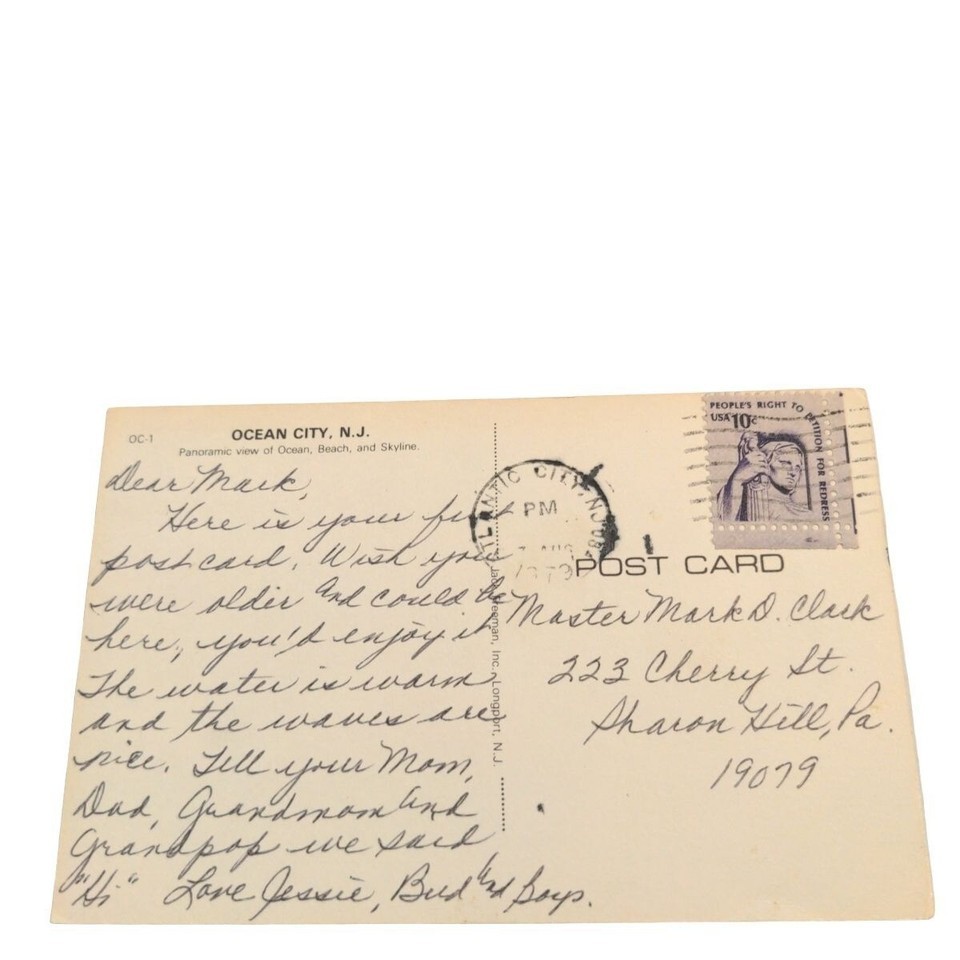 OC-1
OCEAN CITY, N.J.
Panoramic view of Ocean, Beach, and Skyline.
Dear Mark,
Here is your first
postcard. Wish you
were older and could be
here, you'd enjoy it
The water is warm
and the waves are
nice. Tell your Mom,
Dad, Grandmom and
Grandpop we said
"Hi" Love Jessie, Bud and Boys.
Inc., Longport, N.J.
ATLANTIC CITY, NJ 08
PM
AUG
1979
PEOPLE'S RIGHT TO PETITION FOR REDRESS
USA 10c
POST CARD
Master Mark D. Clark
223 Cherry St.
Sharon Hill, Pa.
19079